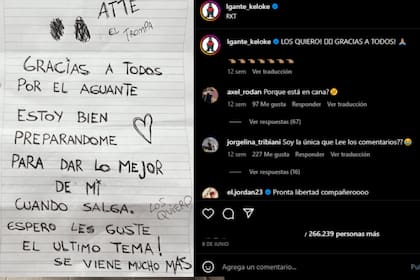 ATTE
EL TROMPA
GRACIAS A TODOS
POR EL AGUANTE
ESTOY BIEN
PREPARANDOME
PARA DAR LO MEJOR
DE MI
CUANDO SALGA.
LOS QUIERO
ESPERO LES GUSTE
EL ULTIMO TEMA!
SE VIENE MUCHO MAS
lgante_keloke
RKT
lgante_keloke LOS QUIERO! GRACIAS A TODOS!
12 sem Ver traducción
axel_rodan Porque está en cana?
12 sem 97 Me gusta Responder Ver traducción
Ver respuestas (67)
jorgelina_tribiani Soy la única que Lee los comentarios??
12 sem 227 Me gusta Responder Ver traducción
Ver respuestas (16)
el.jordan23 Pronta libertad compañeroooo
/ 266.239 personas más
8 DE JUNIO
Agrega un comentario...